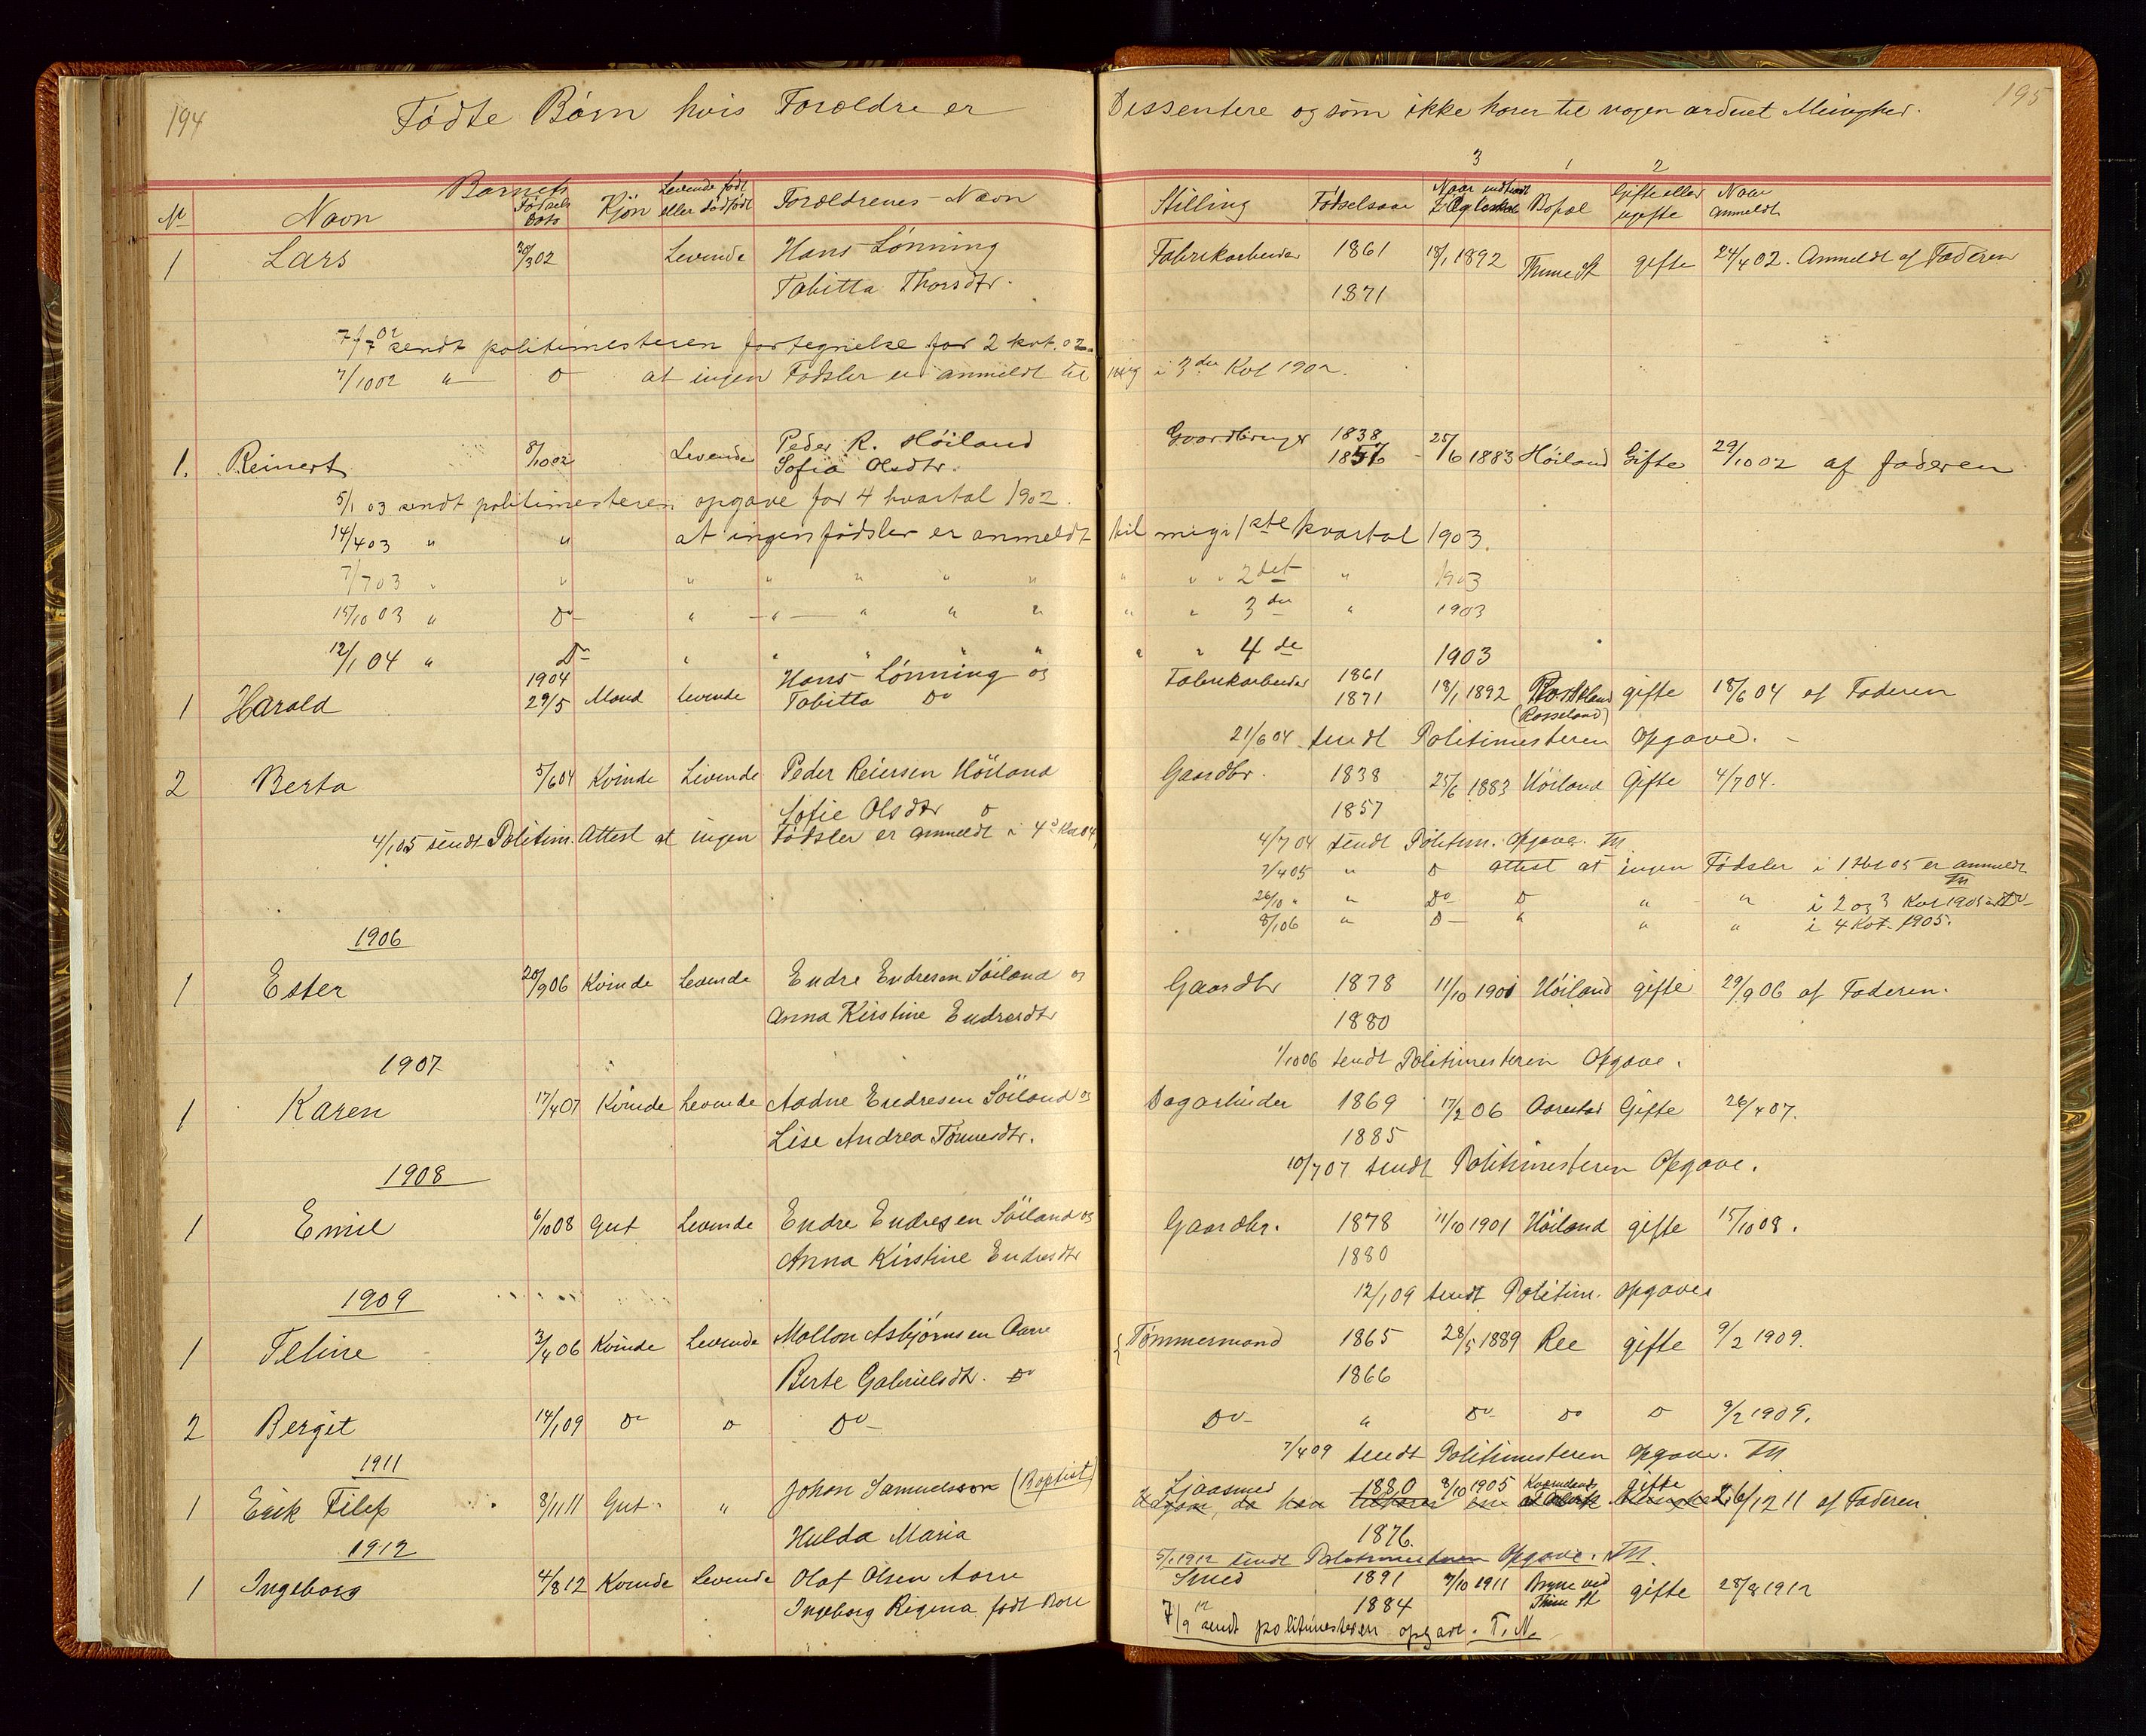 194
195
Fødte Børn hvis Forældre er Dissentere og som ikke hører til nogen ordnet Menighed.
3 1 2
Barnets
№ Navn Fødsels Dato Kjøn Levende født eller dødfødt Forældrenes Navn Stilling Fødselsaar Naar indtraadt i Ægteskab Bopæl Gifte eller ugifte Naar anmeldt
1 Lars 30/3 02 Levende Hans Lønning Fabrikarbeider 1861 18/1 1892 Thime St gifte 24/4 02. Anmeldt af Faderen
Tabitta Thorsdtr. 1871
7/7 02 sendt politimesteren fortegnelse for 2 kvt. 02.
7/10 02 " D at ingen Fødsler er anmeldt til mig i 3die Kvt 1902.
1. Reinert 8/10 02 Levende Peder R. Höiland Gaardbruger 1838 25/6 1883 Höiland Gifte 29/10 02 af faderen
Sofia Olsdtr. 1857
5/1 03 sendt politimesteren opgave for 4 kvartal 1902.
14/4 03 " " at ingen fødsler er anmeldt til mig i 1ste kvartal 1903.
7/7 03 " " " " " " " " " " 2det " 1903
15/10 03 " Do " " " " " " " 3die " 1903
12/1 04 " Do " " " " " " " 4de 1903
1 Harald 1904 29/5 Mand levende Hans Lønning og Fabrikarbeider 1861 18/1 1892 Rosseland gifte 18/6 04 af Faderen
Tabitta Do 1871 (Rosseland)
21/6 04 sendt Politimesteren Opgave. -
2 Berta 5/6 04 Kvinde Levende Peder Reiersen Höiland Gaardbr. 1838 25/6 1883 Höiland Gifte 4/7 04.
Sofie Olsdtr D 1857
4/1 05 sendt Politim. Attest at ingen Fødsler er anmeldt i 4de Kvt 04,
4/7 04 sendt Politim. Opgave. TN
7/4 05 " D attest at ingen Fødsler i 1 Kvt 05 er anmeldt TN
26/10 " " Do D " " i 2 og 3 Kvt 1905 Do
8/1 06 " D " " " i 4 Kvt. 1905.
1906
1 Ester 20/9 06 Kvinde Levende Endre Endresen Söiland og Gaardbr 1878 11/10 1901 Höiland gifte 29/9 06 af Faderen.
Anna Kirstine Endresdtr 1880
1/10 06 sendt Politimesteren Opgave.
1907
1 Karen 17/4 07 Kvinde Levende Aadne Endresen Söiland og Dagarbeider 1869 17/2 06 Aarestad Gifte 26/4 07.
Lise Andrea Tønnesdtr. 1885
10/7 07 sendt Politimesteren Opgave.
1908
1 Emil 6/10 08 Gut Levende Endre Endresen Söiland og Gaardbr. 1878 11/10 1901 Höiland gifte 15/10 08.
Anna Kirstine Endresdtr 1880
12/1 09 sendt Politim. opgaves
1909
1 Teline 3/4 06 Kvinde Levende Mallon Asbjørnsen Aarre Tømmermand 1865 28/5 1889 Ree gifte 9/2 1909.
Berte Gabrielsdtr. Do 1866
2 Bergit 14/1 09 Do D Do Do " Do Do D 9/2 1909.
7/4 09 sendt Politimesteren Opgave. TN
1911
1 Erik Filip 8/11 11 Gut " Johan Samuelsson (Baptist) 1880 3/10 1905 gifte 26/12 11 af Faderen.
Hulda Maria 1876.
5/1 1912 sendt Politimesteren Opgave. TN.
1912
1 Ingeborg 4/8 12 Kvinde Levende Olaf Olsen Aarre Smed 1891 7/10 1911 Bryne ved Thime St gifte 28/8 1912
Ingeborg Regina født Bore 1884
7/9 12 sendt politimesteren opgave. T. N.